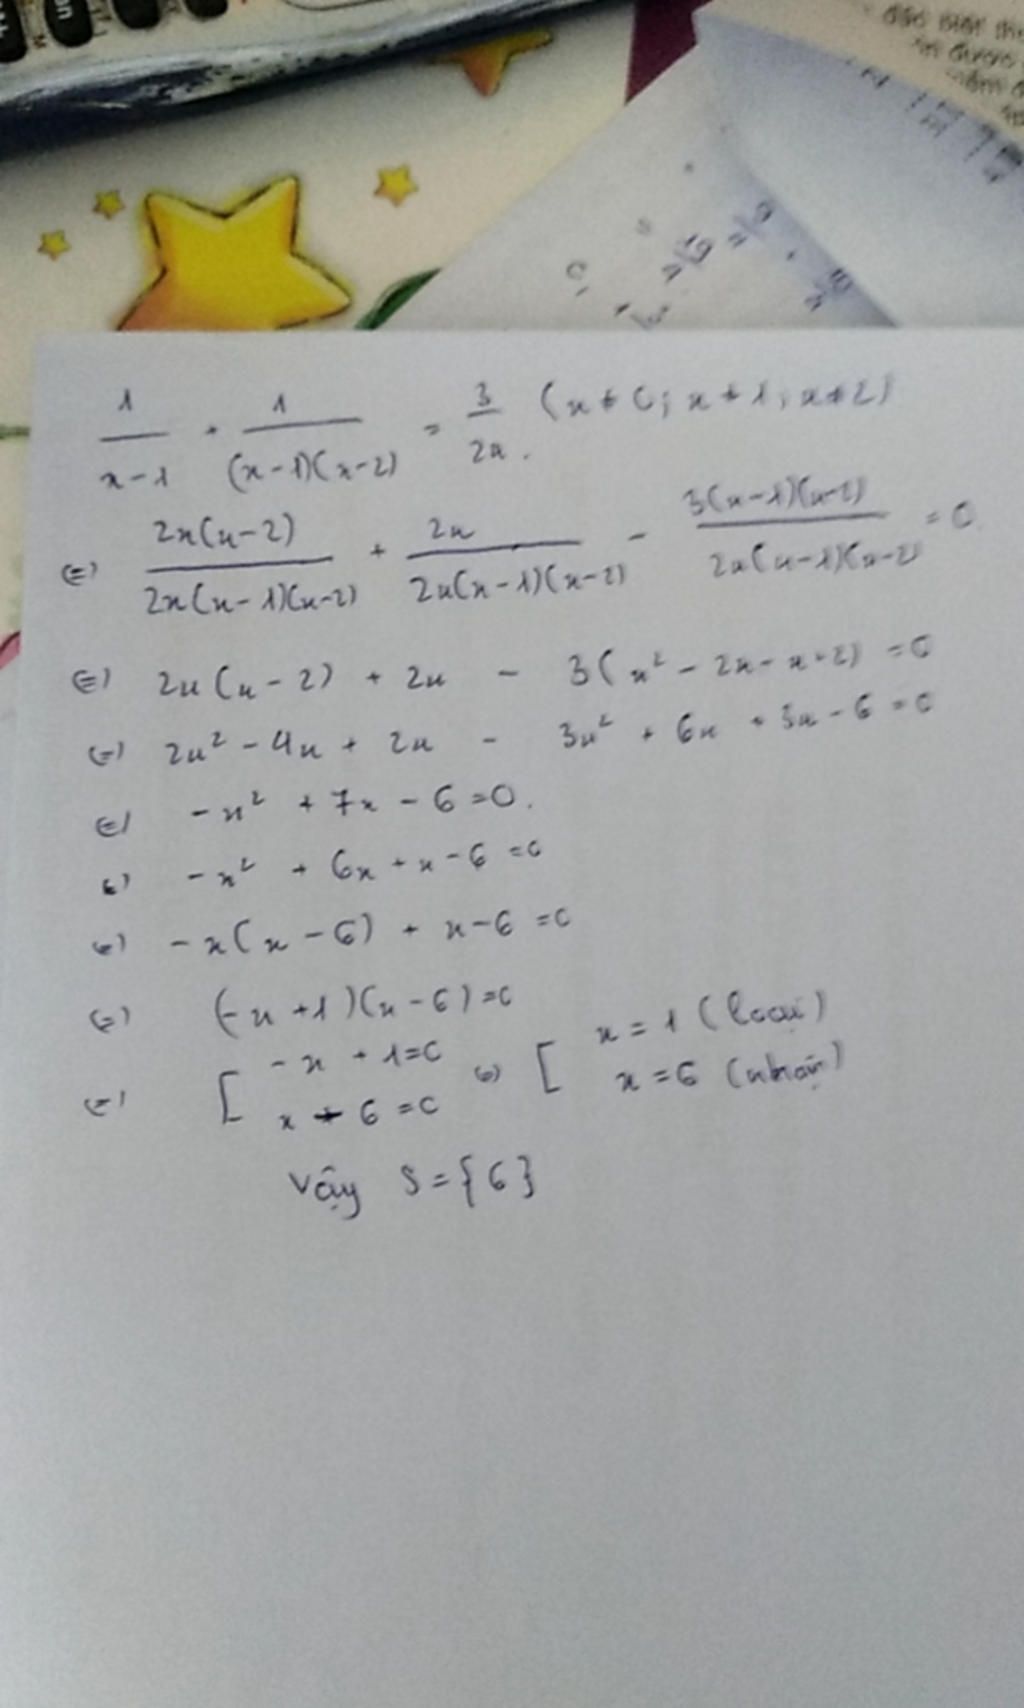 1/(x-1) + 1/((x-1)(x-2)) = 3/(2x) (x ≠ 0; x ≠ 1; x ≠ 2)
(=) 2x(x-2)/(2x(x-1)(x-2)) + 2x/(2x(x-1)(x-2)) - 3(x-1)(x-2)/(2x(x-1)(x-2)) = 0
(=) 2x(x-2) + 2x - 3(x² - 2x - x + 2) = 0
(=) 2x² - 4x + 2x - 3x² + 6x + 3x - 6 = 0
(=) -x² + 7x - 6 = 0.
(=) -x² + 6x + x - 6 = 0
(=) -x(x - 6) + x - 6 = 0
(=) (-x + 1)(x - 6) = 0
(=) [ -x + 1 = 0 (=) [ x = 1 (loại)
x - 6 = 0 x = 6 (nhận)
Vậy S = {6}